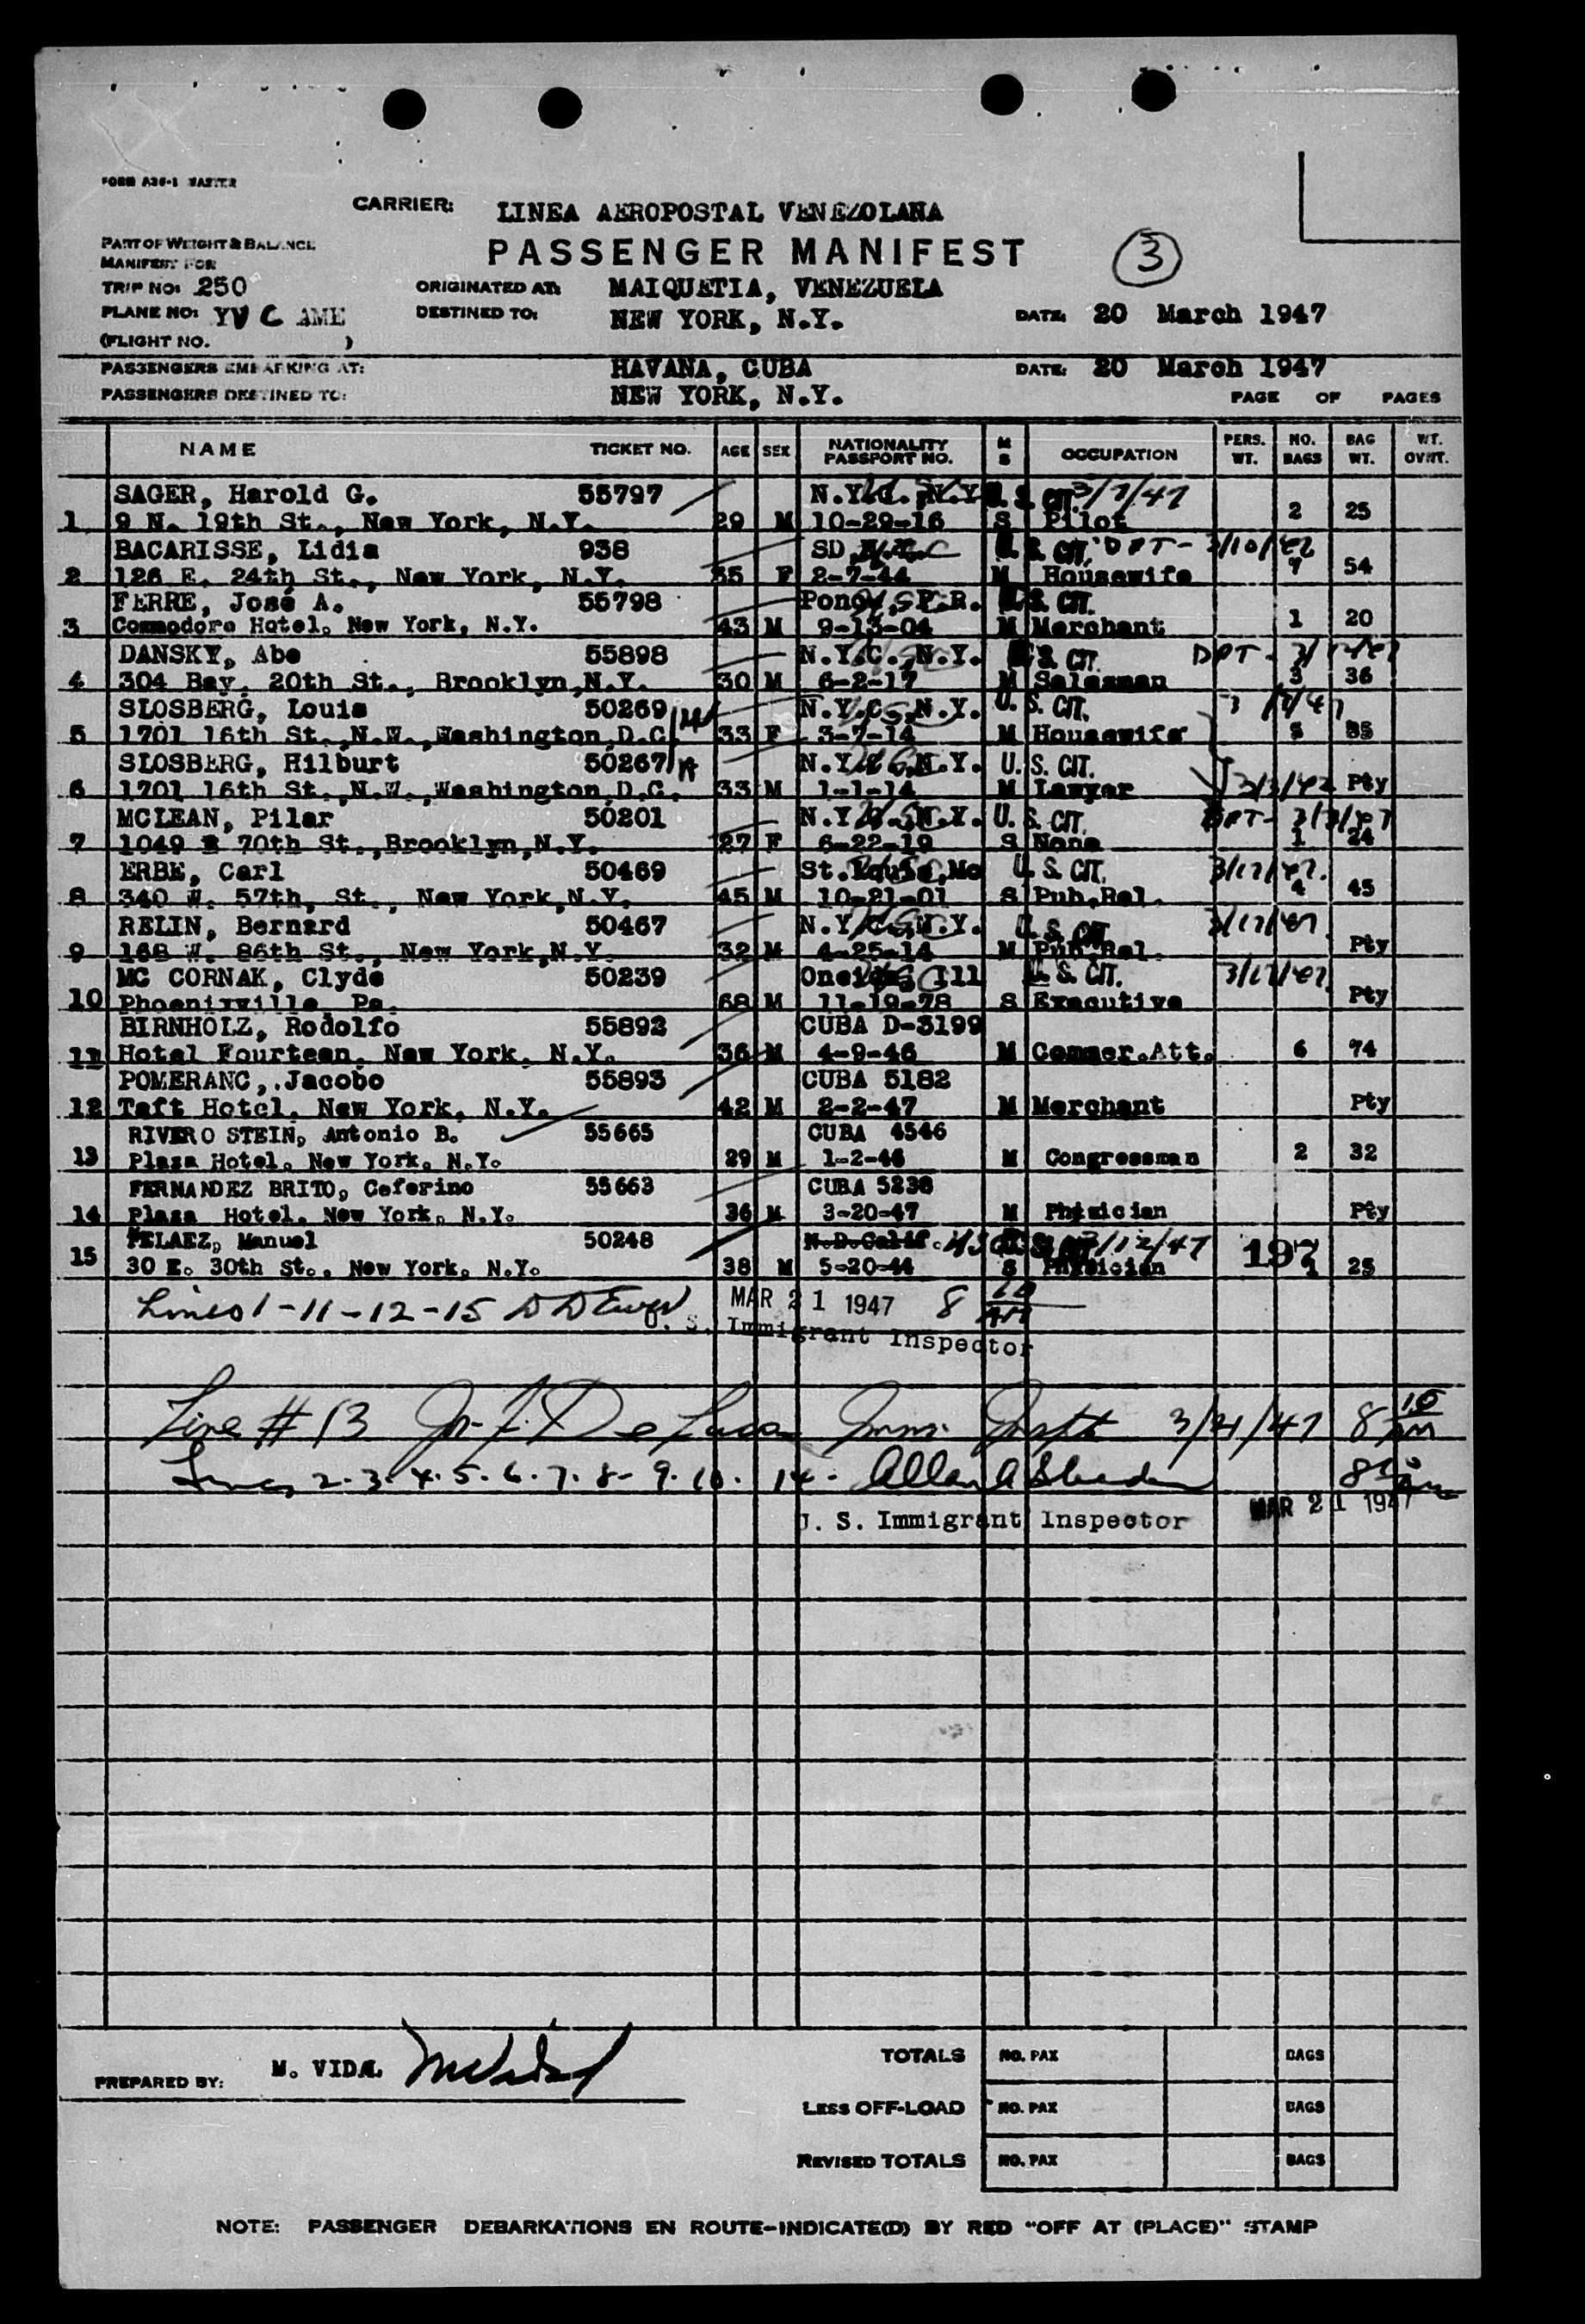 FORM A36-1 MASTER
CARRIER: LINEA AEROPOSTAL VENEZOLANA
PART OF WEIGHT & BALANCE
MANIFEST FOR
PASSENGER MANIFEST 3
TRIP NO: 250 ORIGINATED AT: MAIQUETIA, VENEZUELA
PLANE NO: YV C AME DESTINED TO: NEW YORK, N.Y. DATE: 20 March 1947
(FLIGHT NO. )
PASSENGERS EMBARKING AT: HAVANA, CUBA DATE: 20 March 1947
PASSENGERS DESTINED TO: NEW YORK, N.Y.
PAGE OF PAGES
NAME TICKET NO. AGE SEX NATIONALITY PASSPORT NO. M S OCCUPATION PERS. WT. NO. BAGS BAG WT. WT. OVWT.
SAGER, Harold G. 55797 N.Y.C., N.Y. U. S. CIT. 3/7/47
1 9 N. 19th St., New York, N.Y. 29 M 10-29-16 S Pilot 2 25
BACARISSE, Lidia 938 SD U. S. CIT. DPT- 3/10/47
2 126 E. 24th St., New York, N.Y. 35 F 2-7-44 M Housewife 7 54
FERRE, José A. 55798 Ponce, P.R. U. S. CIT.
3 Commodore Hotel, New York, N.Y. 43 M 9-13-04 M Merchant 1 20
DANSKY, Abe 55898 N.Y.C., N.Y. U. S. CIT. DPT-
4 304 Bay. 20th St., Brooklyn,N.Y. 30 M 6-2-17 M Salesman 3 36
SLOSBERG, Louis 50269 N.Y.C., N.Y. U. S. CIT.
5 1701 16th St.,N.W.,Washington,D.C. 33 F 3-7-14 M Housewife 5 85
SLOSBERG, Hilburt 50267 N.Y.C., N.Y. U. S. CIT.
6 1701 16th St.,N.W.,Washington,D.C. 33 M 1-1-14 M Lawyer Pty
MCLEAN, Pilar 50201 N.Y.C., N.Y. U. S. CIT. DPT-
7 1049 70th St.,Brooklyn,N.Y. 27 F 6-22-19 S None 1 24
ERBE, Carl 50469 St. Louis,Mo U. S. CIT. 3/17/47.
8 340 W. 57th, St., New York,N.Y. 45 M 10-21-01 S Pub.Rel. 4 45
RELIN, Bernard 50467 N.Y.C., N.Y. U. S. CIT. 3/17/47
9 168 W. 86th St., New York,N.Y. 32 M 4-25-14 M Pub.Rel. Pty
MC CORNAK, Clyde 50239 Ill U. S. CIT. 3/17/47
10 Phoenixville, Pa. 68 M 11-19-78 S Executive Pty
BIRNHOLZ, Rodolfo 55892 CUBA D-3199
11 Hotel Fourteen, New York, N.Y. 36 M 4-9-46 M Commer.Att. 6 74
POMERANC,.Jacobo 55893 CUBA 5182
12 Taft Hotel, New York, N.Y. 42 M 2-2-47 M Merchant Pty
RIVERO STEIN, Antonio B. 55665 CUBA 4546
13 Plaza Hotel. New York. N.Y. 29 M 1-2-46 M Congressman 2 32
FERNANDEZ BRITO, Ceferino 55663 CUBA 5238
14 Plaza Hotel. New York. N.Y. 36 M 3-20-47 M Phisician Pty
PELAEZ, Manuel 50248 N.D.Calif. USC 3/12/47
15 30 E. 30th St., New York. N.Y. 38 M 5-20-44 S Physician 197 1 25
Lines 1-11-12-15 MAR 21 1947 8 10 AM
U. S. Immigrant Inspector
Line # 13 De Lucas Imm. Inspt 3/21/47 8 10
Lines 2.3.4.5.6.7.8-9.10. 14. Allan A 8
U. S. Immigrant Inspector MAR 21 1947
PREPARED BY: M. VIDAL
TOTALS NO. PAX BAGS
LESS OFF-LOAD NO. PAX BAGS
REVISED TOTALS NO. PAX BAGS
NOTE: PASSENGER DEBARKATIONS EN ROUTE-INDICATE(D) BY RED "OFF AT (PLACE)" STAMP